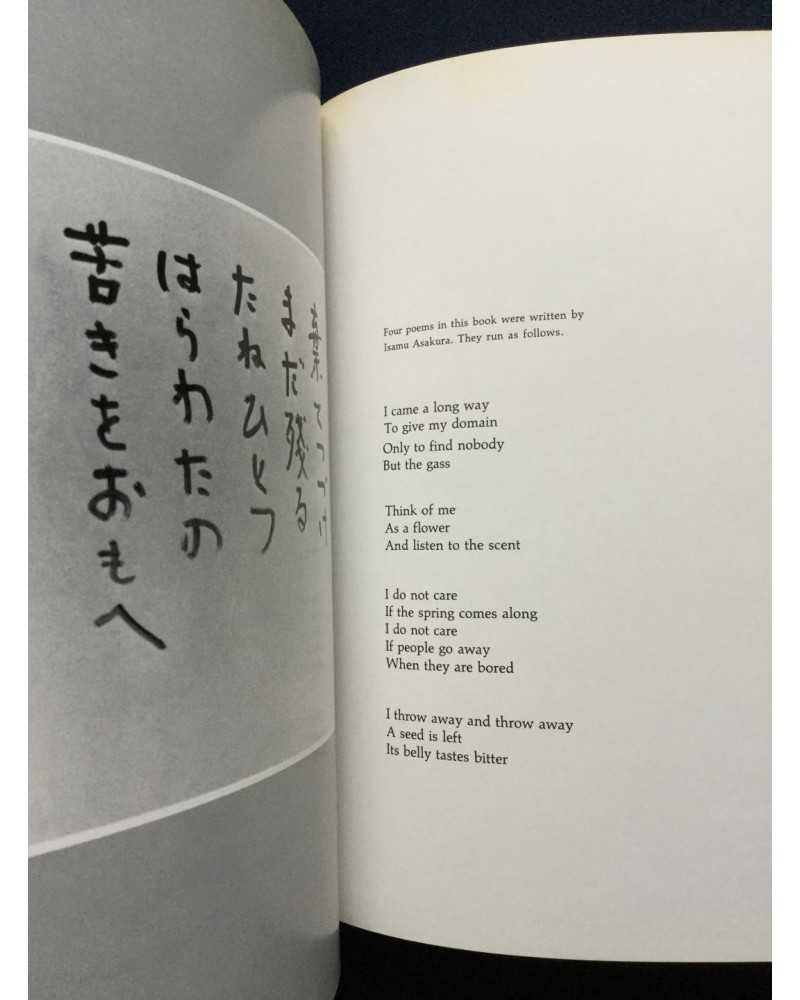 棄てつづけ
まだ残る
たねひとつ
はらわたの
苦きをおもへ
Four poems in this book were written by
Isamu Asakura. They run as follows.
I came a long way
To give my domain
Only to find nobody
But the gass
Think of me
As a flower
And listen to the scent
I do not care
If the spring comes along
I do not care
If people go away
When they are bored
I throw away and throw away
A seed is left
Its belly tastes bitter